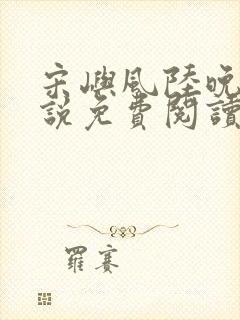 宋嶼風陸晚
說免費閱讀
羅賽